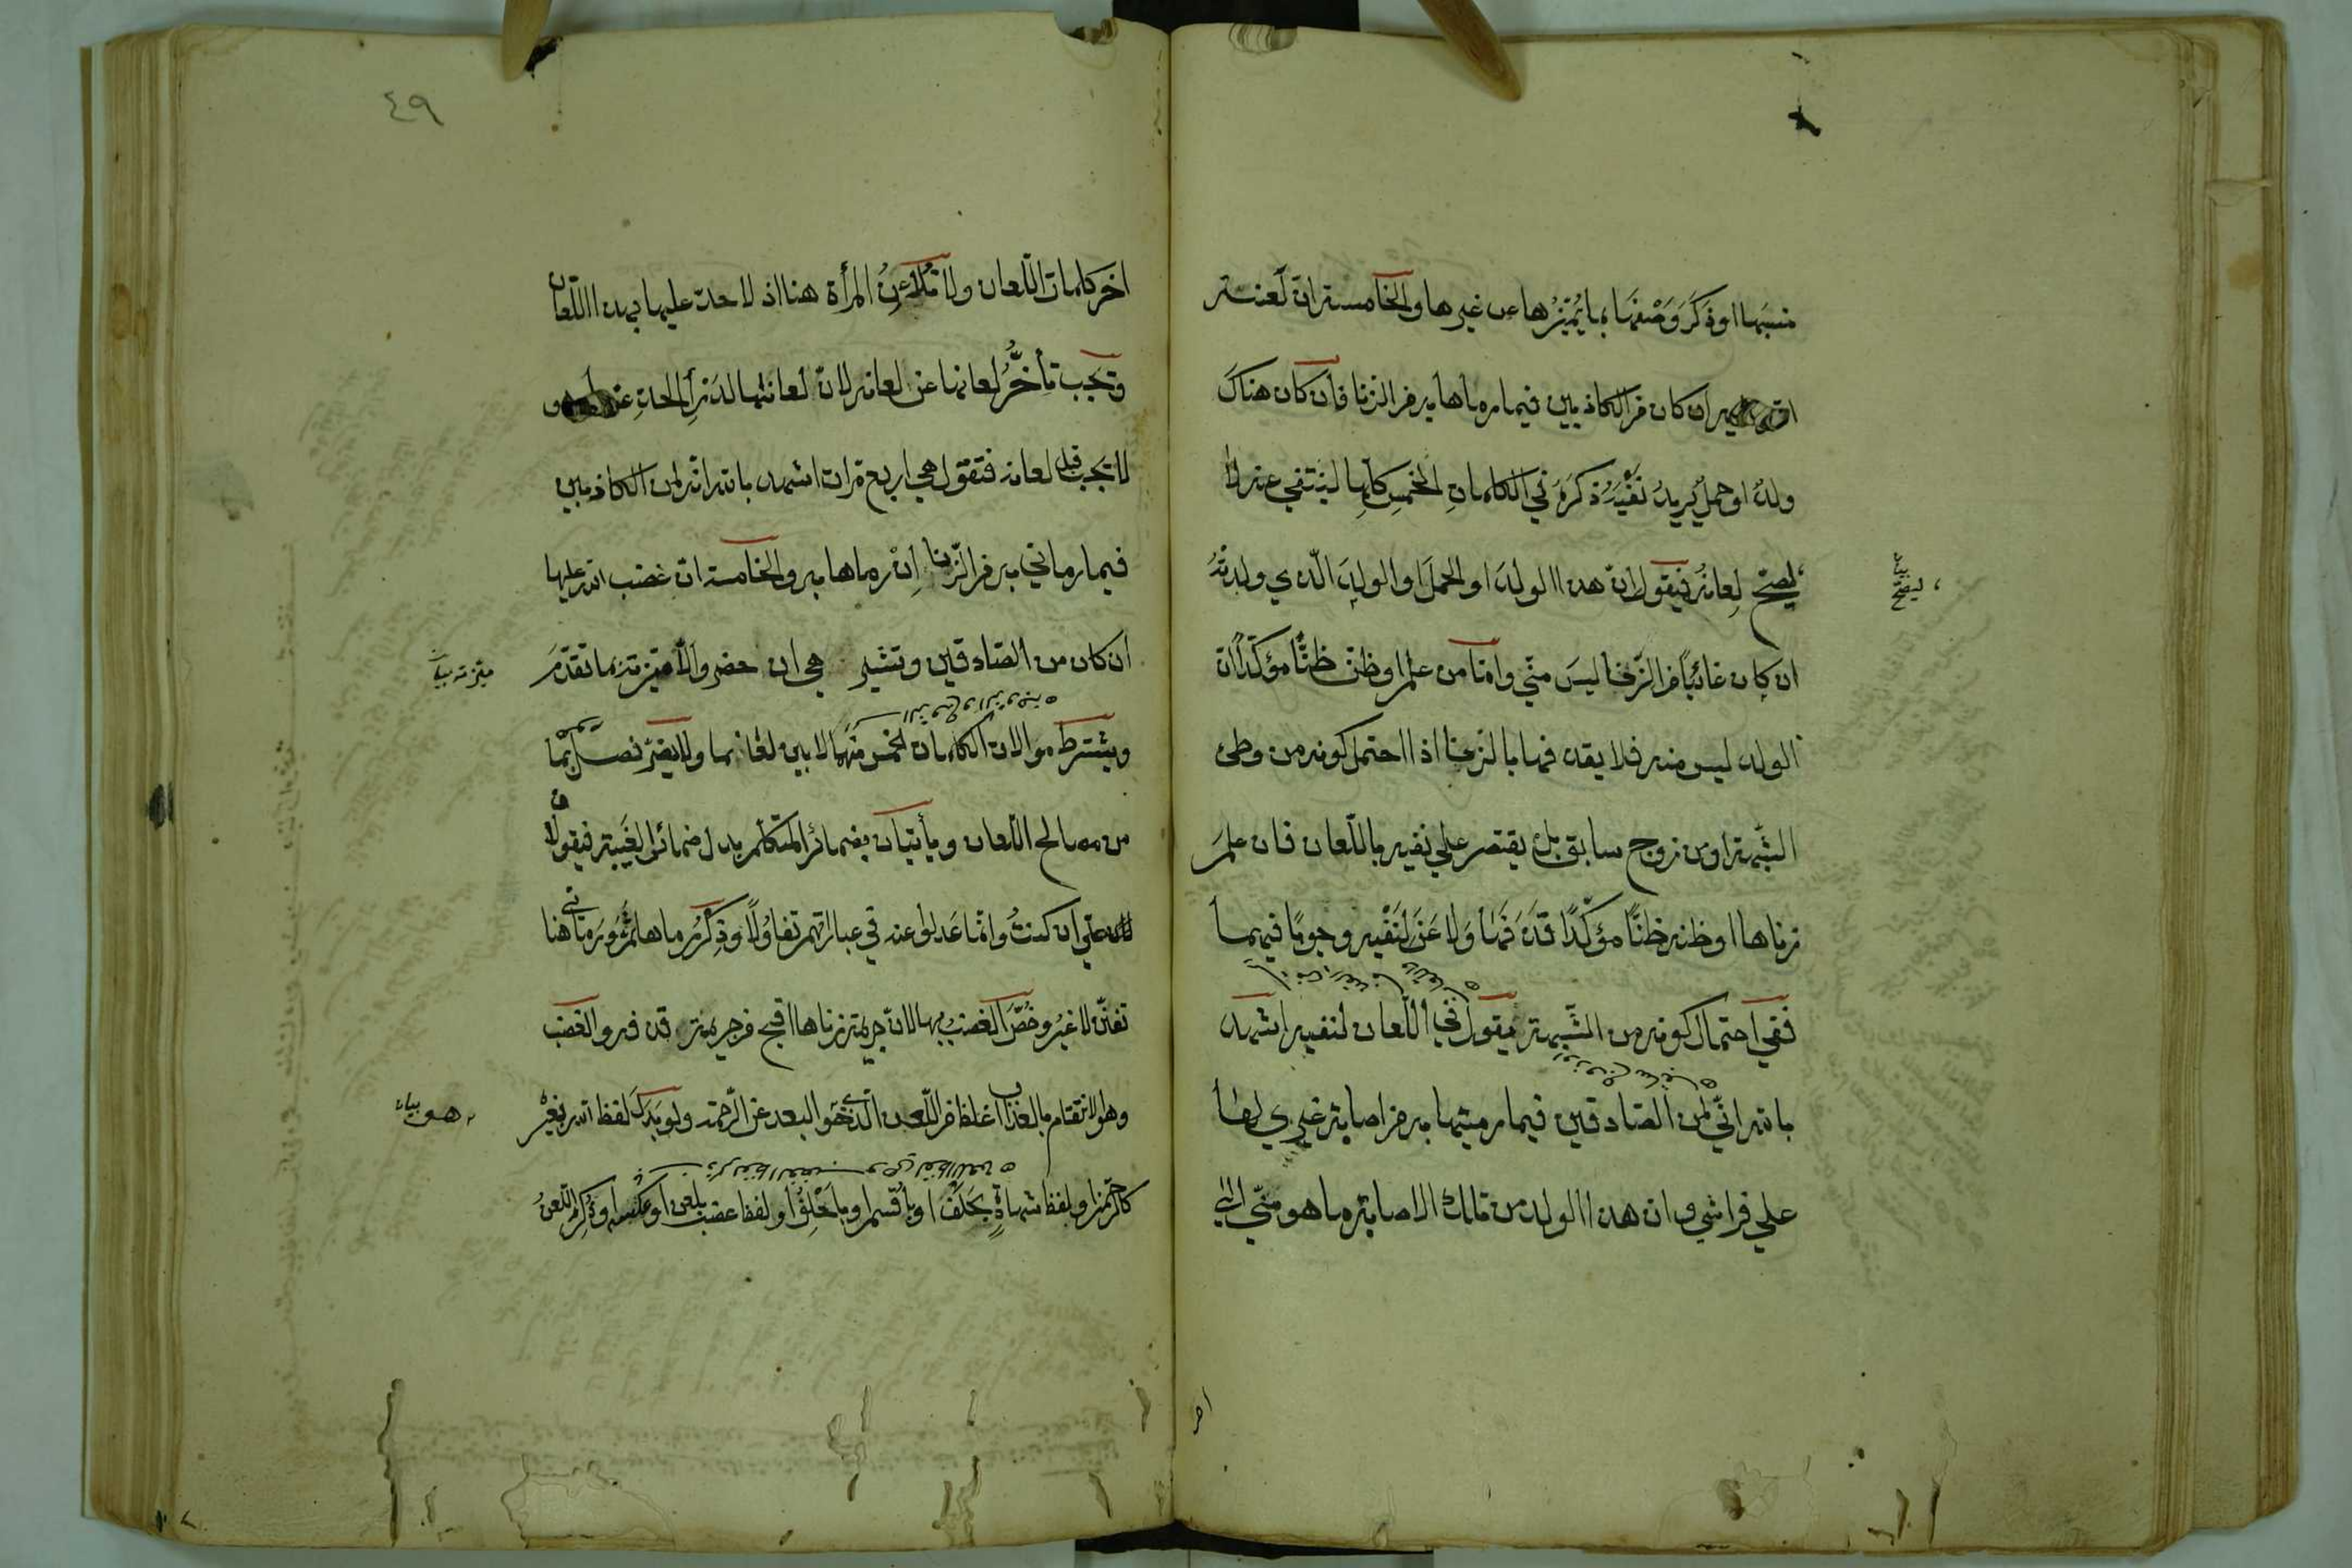 نسبها او ذكر وصفها بما يميزها عن غيرها والخامسة ان لعنة
الله عليه ان كان من الكاذبين فيما رماها به من الزنا فان كان هناك
ولد او حمل يريد نفيه ذكره في الكلمات الخمس كلها لينتفي عنه
ليصح لعانه فيقول ان هذا الولد او الحمل او الولد الذي ولدته
ان كان غائبا من الزنا ليس مني واما من علم او ظن ظنا مؤكدا ان
الولد ليس منه فلا يقذفها بالزنا اذا احتمل كونه من وطئ
الشبهة او من زوج سابق بل يقتصر علي نفيه باللعان فان علم
زناها او ظنه ظنا مؤكدا قذفها ولاعن لنفيه وجوبا فيهما
ففي احتمال كونه من الشبهة يقول في اللعان لنفيه اشهد
بالله اني لمن الصادقين فيما رميتها به من اصابة غيري لها
علي فراشي وان هذا الولد من تلك الاصابة ما هو مني الي
بيان ليصح
اخر
٤٩
اخر كلمات اللعان ولا تلاعن المرأة هنا اذ لا حد عليها بهذا اللعان
ويجب تأخر لعانها عن لعانه لان لعانها لدرأ الحد عن و
لا يجب قبل لعانه فتقول هي اربع مرات اشهد بالله انه لمن الكاذبين
فيما رماني به من الزنا ان رماها به والخامسة ان غضب الله عليها
ان كان من الصادقين وتشير هي ان حضر والا ميزته بما تقدم
ويشترط موالات الكلمات الخمس منهما لا بين لعانهما ولا يضر فصل بما
من مصالح اللعان ويأتيان بضمائر المتكلم بدل ضمائر الغيبة فيقولان
علي ان كنت وانما عدلوا عنه في عباراتهم تفاؤلا وذكر رماها ثم ورماني هنا
تفنن لا غير وخص الغضب بها لان جريمة زناها اقبح من جريمة قذفه والغضب
وهو الانتقام بالعذاب اغلظ من اللعن الذي هو البعد عن الرحمة ولو بدل لفظ الله بغيره
كالرحمن او لفظ شهادة بحلف او باقسم او باحلف او لفظ غضب بلعن او عكسه او ذكر اللعن
ميزته بيان
هو بيان